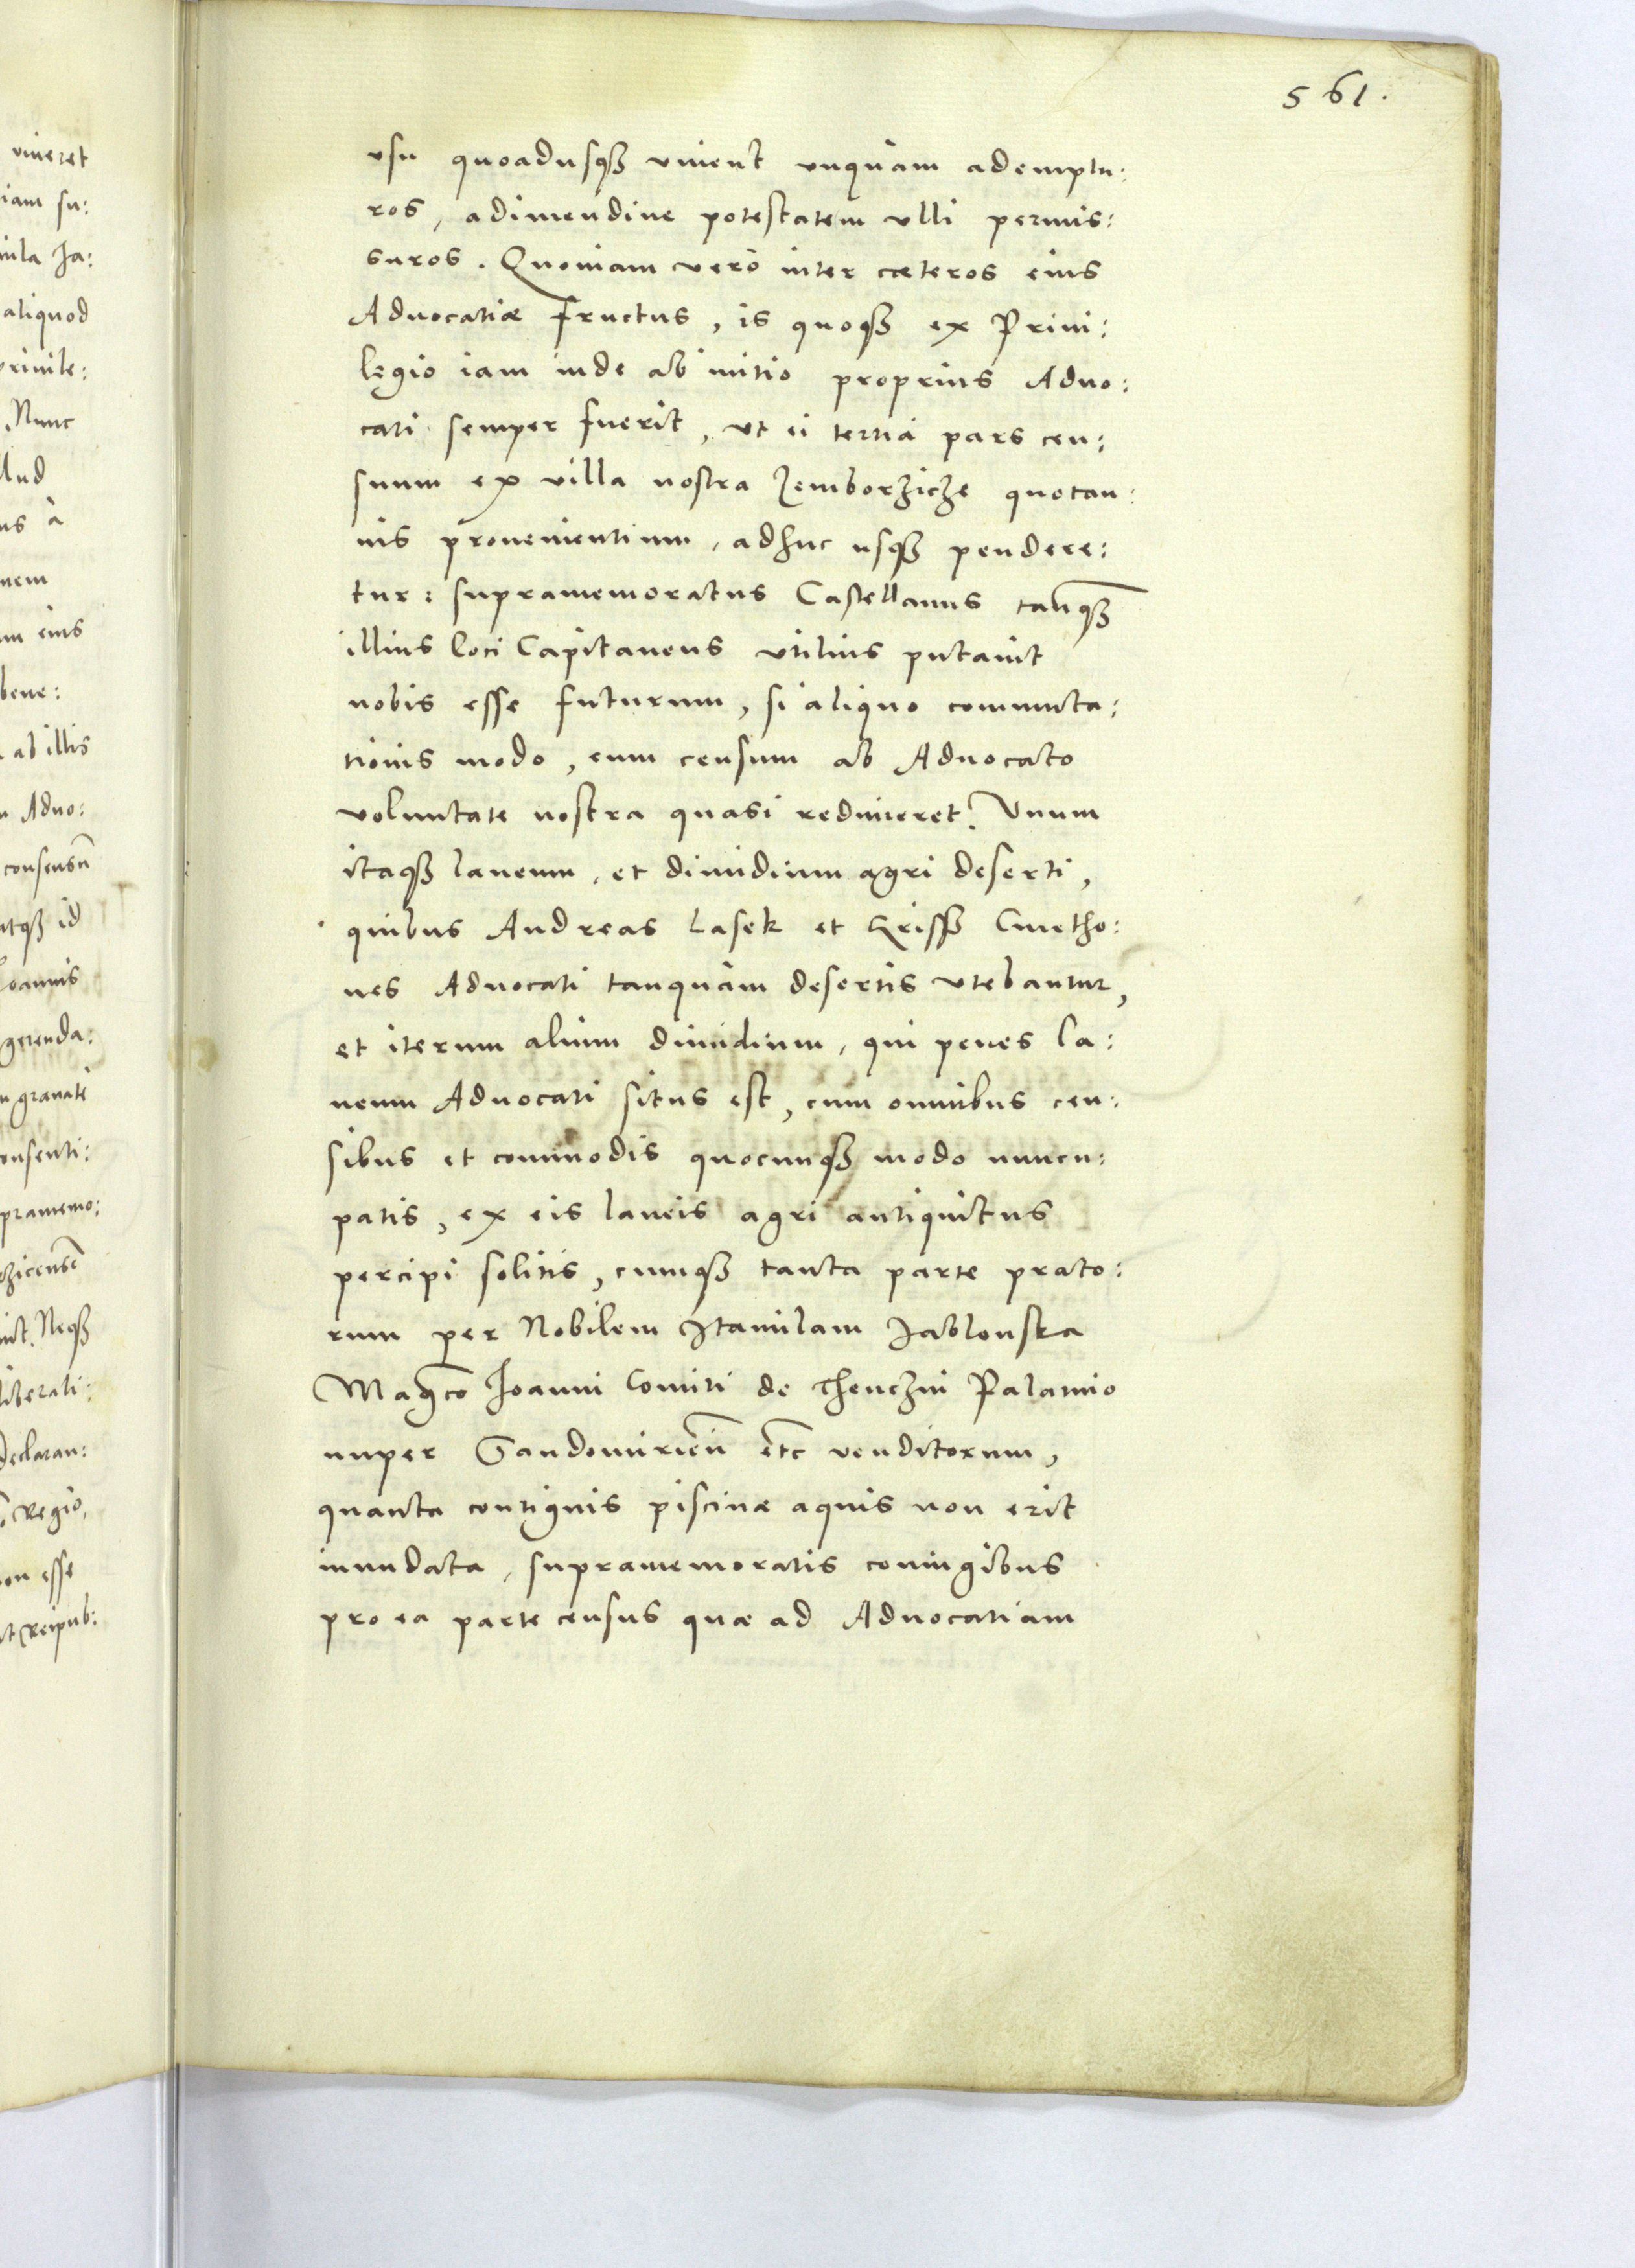 561.
usu quoadusq[ue] viuent vnquàm ademptu:
ros, adimendiue potestatem vlli permis:
suros. Quoniam verò inter cæteros eius
Aduocatiæ fructus, is quoq[ue] ex Priui:
legio iam inde ab initio proprius Aduo:
cati semper fuerit, vt ei tertia pars cen:
suum ex villa nostra Zemborzicze quotan:
nis prouenientium, adhuc usq[ue] pendere:
tur: supramemoratus Castellanus tanq[uam]
illius loci Capitaneus vtilius putauit
nobis esse futurum, si aliquo commuta:
tionis modo, eum censum ab Aduocato
voluntate nostra quasi redimeret. Vnum
itaq[ue] laneum, et dimidium agri deserti,
quibus Andreas Lasek et Criss Cmetho:
nes Aduocati tanquàm desertis vtebantur,
et iterum alium dimidium, qui penes la:
neum Aduocati situs est, cum omnibus cen:
sibus et commodis quocunq[ue] modo nuncu:
patis, ex eis laneis agri antiquitus
percipi solitis, cumq[ue] tanta parte prato:
rum per Nobilem Stanilam Jablonska
Mag[nifi]co Joanni Comiti de Thenczin Palatino
nuper Sandomirien̄ etc venditorum,
quanta contiguis piscinæ aquis non erit
inundata, supramemoratis coniugibus
pro ea parte census quæ ad Aduocatiam